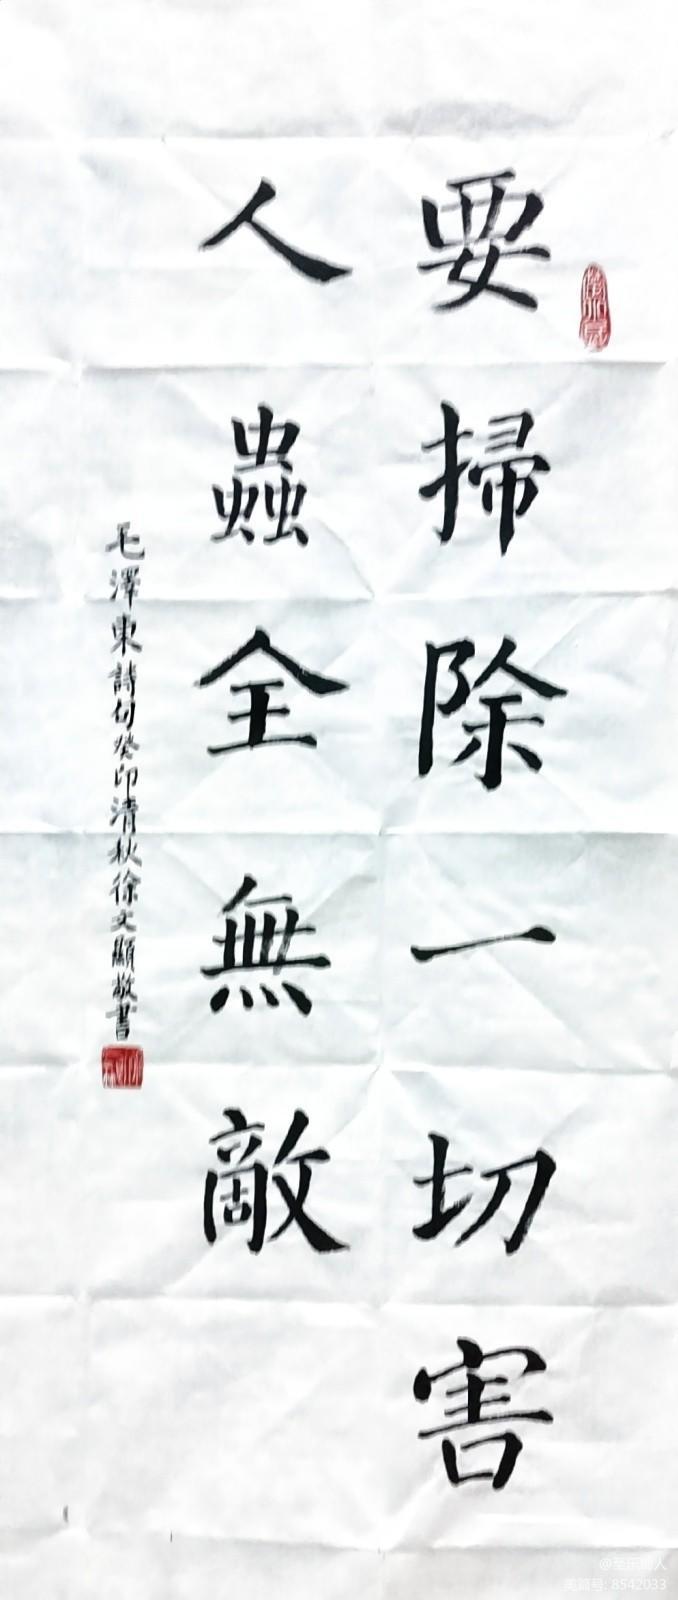 要掃除一切害
人蟲全無敵
毛澤東詩句癸卯清秋徐文顯敬書
美篇号: 8542033